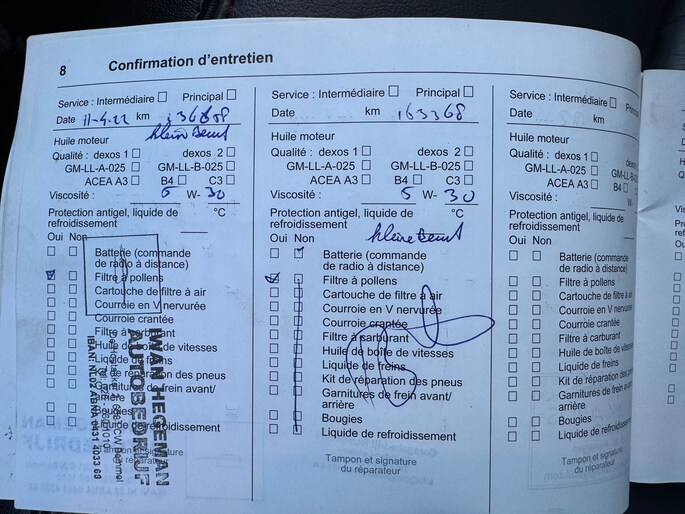 8 Confirmation d'entretien
Service : Intermédiaire Principal
Date 11-4-22 km
Huile moteur
Qualité : dexos 1 dexos 2
GM-LL-A-025 GM-LL-B-025
ACEA A3 B4 C3
Viscosité : 5 W- 30
Protection antigel, liquide de refroidissement °C
Oui Non
Batterie (commande
de radio à distance)
Filtre à pollens
Cartouche de filtre à air
Courroie en V nervurée
Courroie crantée
Filtre à carburant
Huile de boîte de vitesses
Liquide de freins
Kit de réparation des pneus
Garnitures de frein avant/
arrière
Bougies
Liquide de refroidissement
Tampon et signature
du réparateur
IWAN HEGEMAN
AUTOBEDRIJF
Service : Intermédiaire Principal
Date km 163368
Huile moteur
Qualité : dexos 1 dexos 2
GM-LL-A-025 GM-LL-B-025
ACEA A3 B4 C3
Viscosité : 5 W- 30
Protection antigel, liquide de
refroidissement °C
Oui Non
Batterie (commande
de radio à distance)
Filtre à pollens
Cartouche de filtre à air
Courroie en V nervurée
Courroie crantée
Filtre à carburant
Huile de boîte de vitesses
Liquide de freins
Kit de réparation des pneus
Garnitures de frein avant/
arrière
Bougies
Liquide de refroidissement
Tampon et signature
du réparateur
Service : Intermédiaire
Date
Huile moteur
Qualité : dexos 1
GM-LL-A-025
ACEA A3 B4
Viscosité :
Protection antigel, liquide de
refroidissement
Oui Non
Batterie (commande
de radio à distance)
Filtre à pollens
Cartouche de filtre à air
Courroie en V nervurée
Courroie crantée
Filtre à carburant
Huile de boîte de vitesses
Liquide de freins
Kit de réparation des
Garnitures de frein
arrière
Bougies
Liquide de refroidissement
Tampon et signature
du réparateur